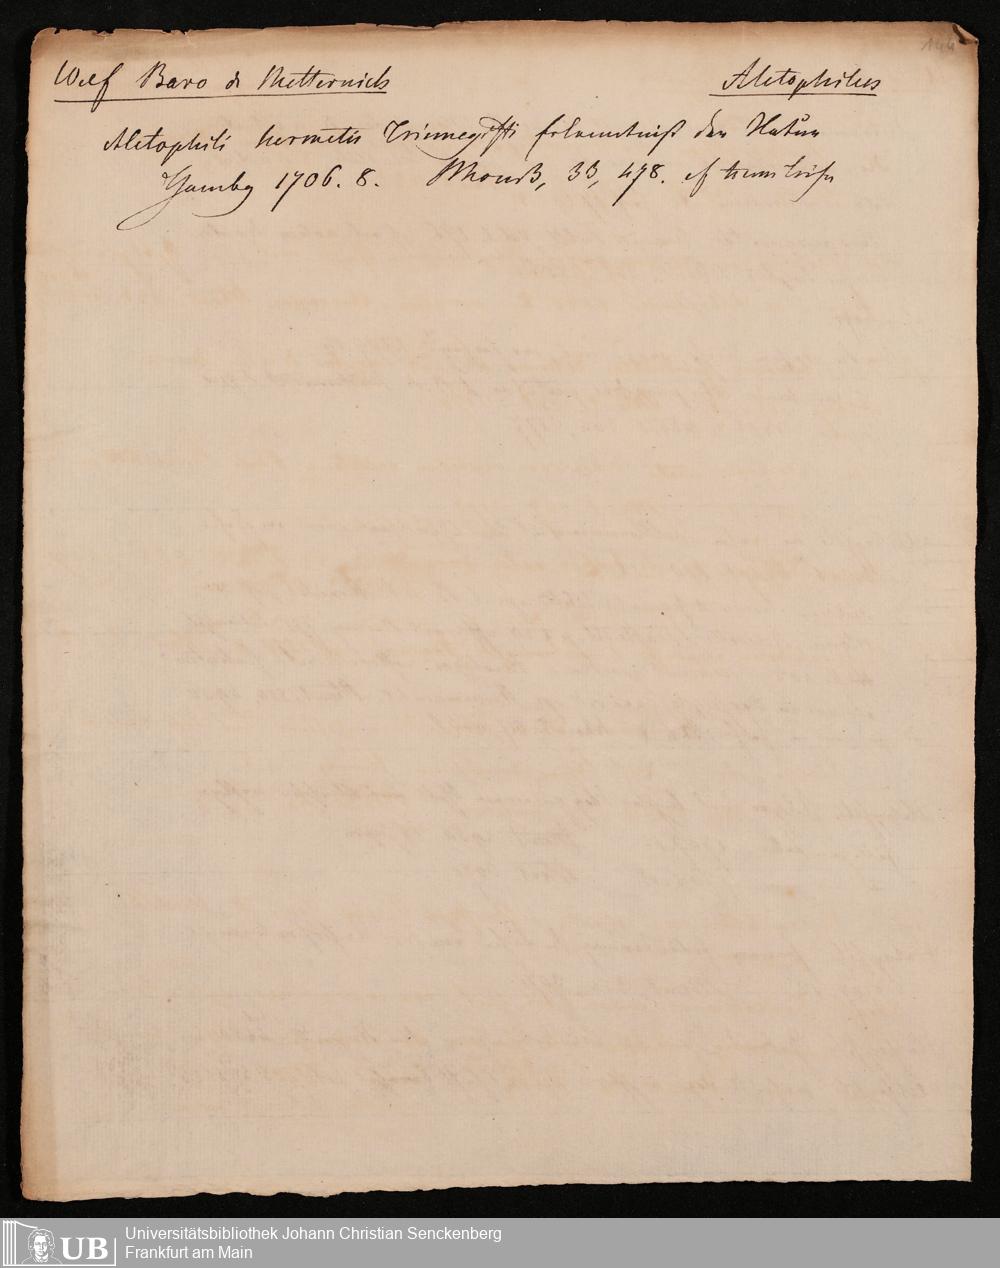 144
Wolf Baro de Metternich Aletophilus
Aletophili hermetis Trismegisti Erkenntniß der Natur
Hamburg 1706. 8. 33, 478. cf
UB
Universitätsbibliothek Johann Christian Senckenberg
Frankfurt am Main